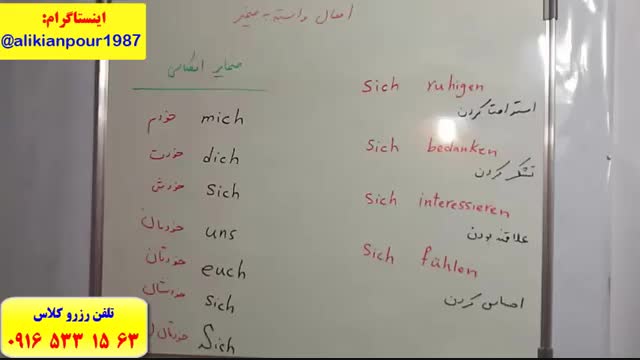 اینستاگرام:
@alikianpour1987
افعال - ضمیر
ضمایر انعکاسی
mich خودم
dich خودت
sich خودش
uns خودمان
euch خودتان
sich خودشان
Sich خودتان
sich ruhigen
استراحت کردن
sich bedanken
تشکر کردن
sich interessieren
علاقه بودن
sich fühlen
احساس کردن
تلفن رزرو کلاس
۰۹۱۶ ۵۳۳ ۱۵ ۶۳